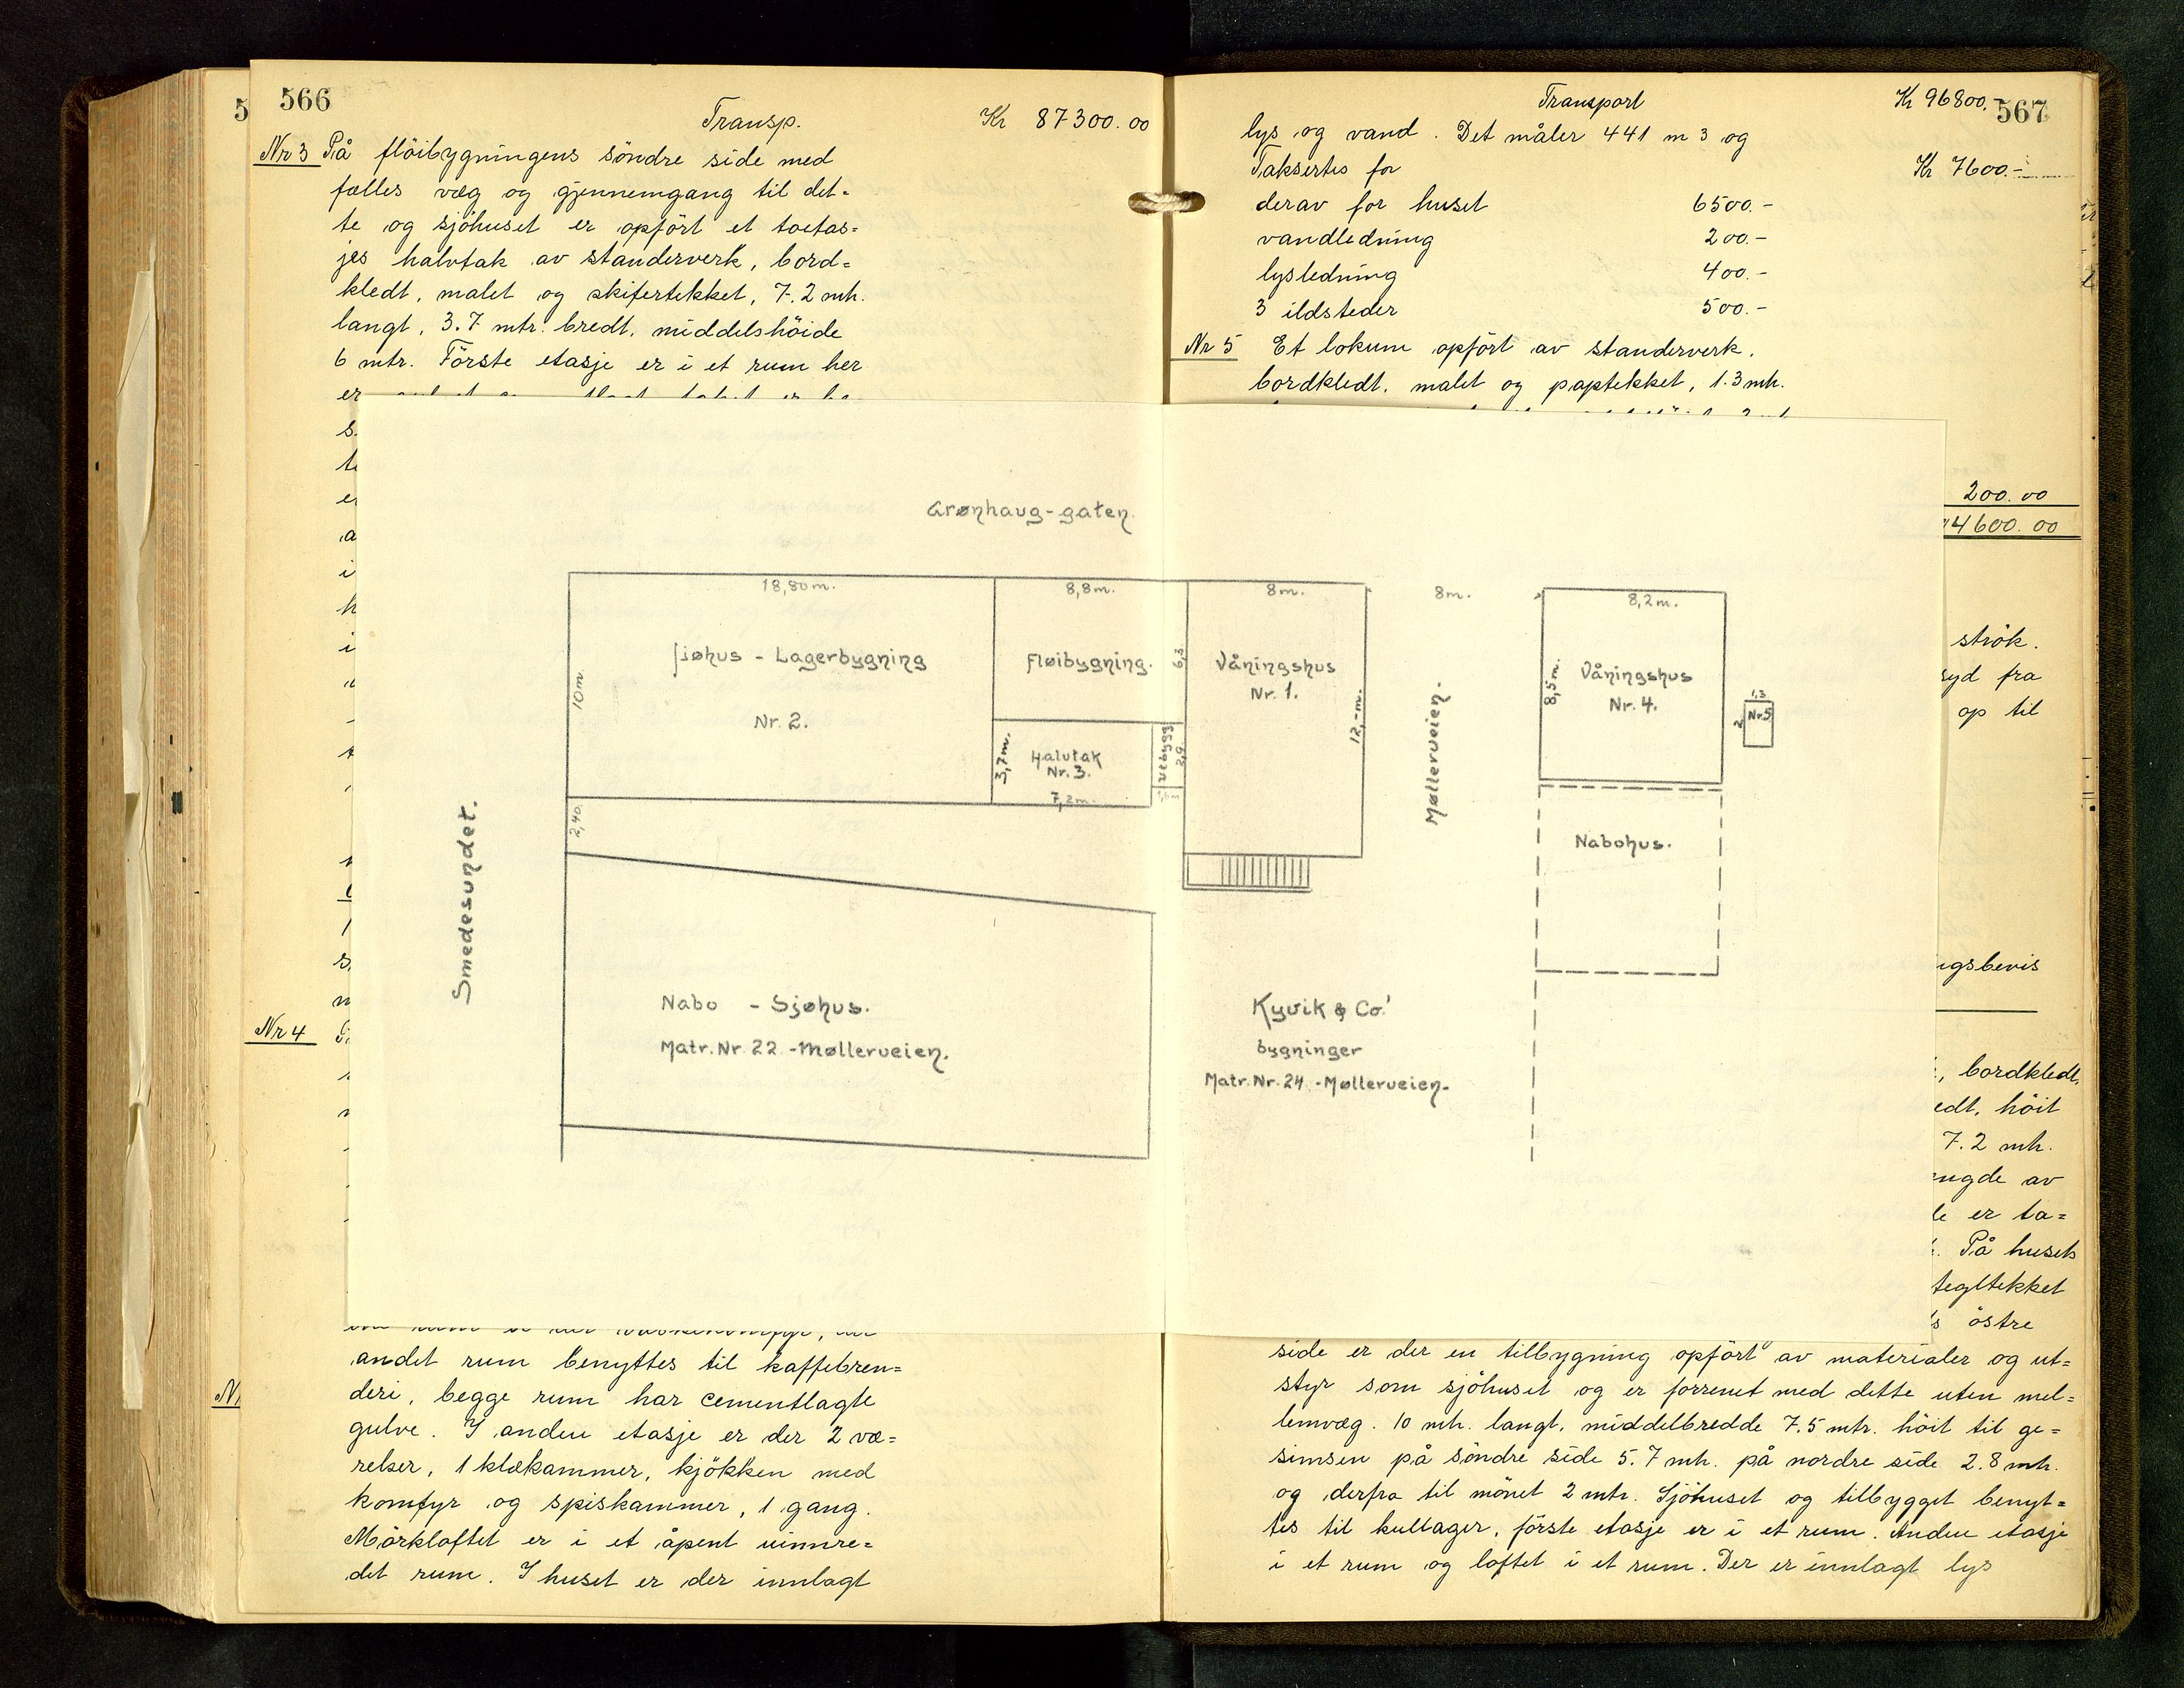 566
Transp. Kr 87300.00
Nr 3 På flöibygningens söndre side med
fælles væg og gjennemgang til det-
te og sjöhuset er opfört et toetas-
jes halvtak av standerverk, bord-
kledt, malet og skifertekket, 7.2 mtr.
langt, 3.7 mtr. bredt, middelshöide
6 mtr. Förste etasje er i et rum her
er
Nr 4
andet rum benyttes til kaffebren-
deri, begge rum har cementlagte
gulve. I anden etasje er der 2 væ-
relser, 1 klækammer, kjökken med
komfyr og spiskammer, 1 gang.
Mörkloftet er i et åpent uinnre-
det rum. I huset er der innlagt
567
Transport Kr 96800.-
lys og vand. Det måler 441 m 3 og
Taksertes for Kr 7600.-
derav for huset 6500.-
vandledning 200.-
lysledning 400.-
3 ildsteder 500.-
Nr 5 Et lokum opfört av standerverk,
bordkledt, malet og paptekket, 1.3 mtr.
200.00
4600.00
strök.
syd fra
op til
ngsbevis
, bordkledt,
edt, höit
7.2 mtr.
er ta-
. På husets
tegltekket
östre
side er der en tilbygning opfört av materialer og ut-
styr som sjöhuset og er forrenet med dette uten mel-
lemvæg. 10 mtr. langt, middelbredde 7.5 mtr. höit til ge-
simsen på söndre side 5.7 mtr. på nordre side 2.8 mtr.
og derfra til mönet 2 mtr. Sjöhuset og tilbygget benyt-
tes til kullager, förste etasje er i et rum. Anden etasje
i et rum og loftet i et rum. Der er innlagt lys
Grønhaug-gaten.
18,80m. 8,8m. 8m. 8m. 8,2m.
Sjøhus - Lagerbygning
Nr. 2.
10m.
Fløibygning.
6,3
Våningshus
Nr. 1.
12,-m.
Møllerveien.
8,5m.
Våningshus
Nr. 4.
1,3
2
Nr5
3,7m.
Halvtak
Nr. 3.
7,2m.
Utbygg
2,9
2,40.
Smedesundet.
Nabohus.
Nabo - Sjøhus.
Matr. Nr. 22 - Møllerveien.
Kyvik & Co!
bygninger
Matr. Nr. 24 - Møllerveien.